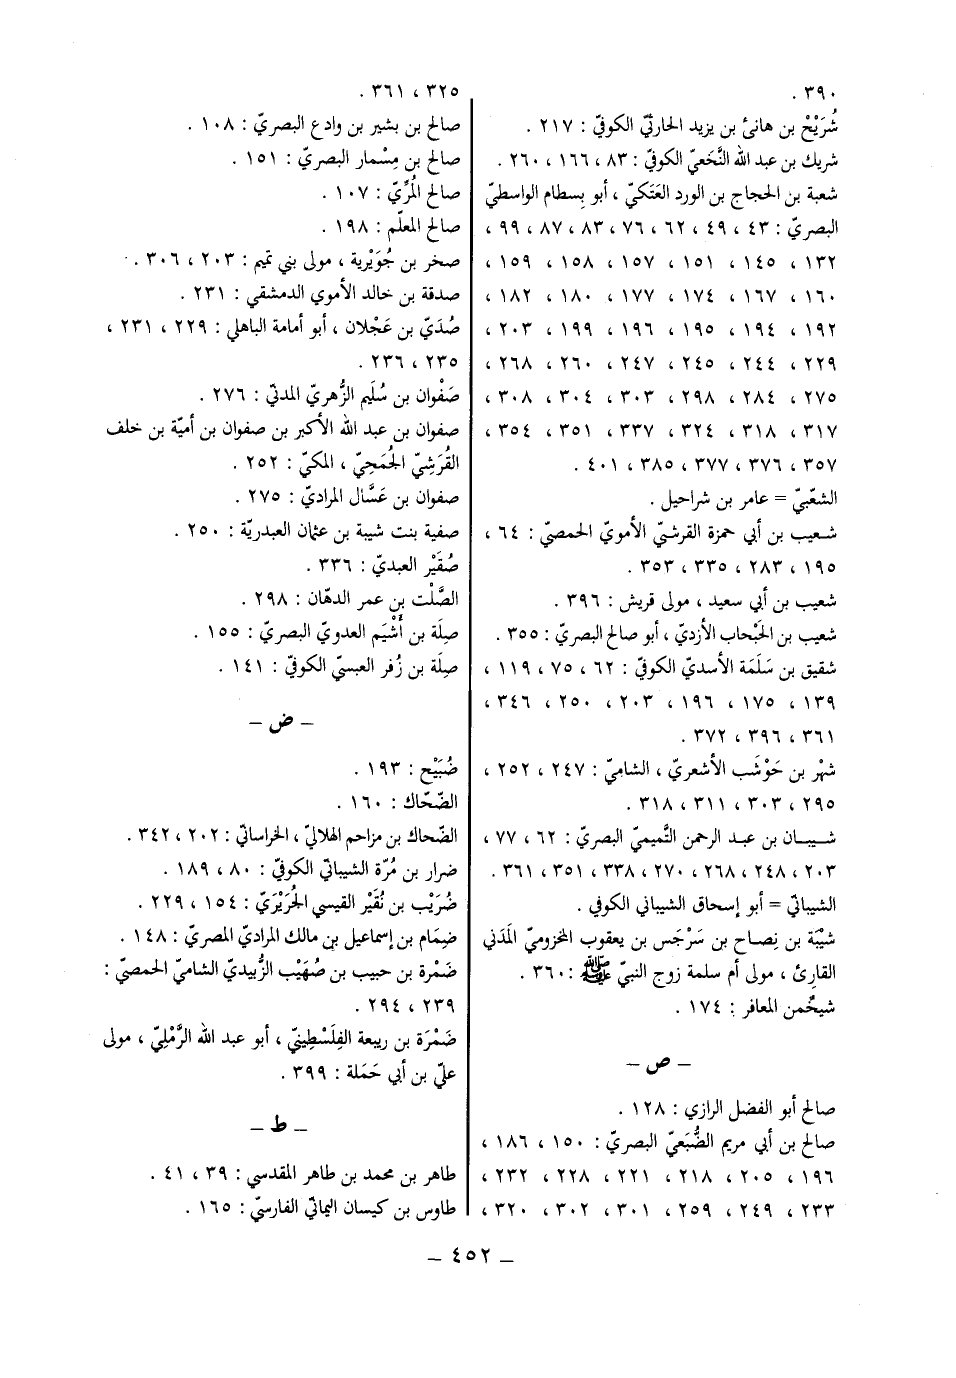 ٣٩٠ .
شُرَيْحْ بن هانئ بن يزيد الحارثيّ الكوفيّ : ٢١٧ .
شريك بن عبد الله النَّخَعيّ الكوفيّ : ٨٣ ، ١٦٦ ، ٢٦٠ .
شعبة بن الحجاج بن الورد العَتَكيّ ، أبو بِسطام الواسطيّ
البصريّ : ٤٣ ، ٤٩ ، ٦٢ ، ٧٦ ، ٨٣ ، ٨٧ ، ٩٩ ،
١٣٢ ، ١٤٥ ، ١٥١ ، ١٥٧ ، ١٥٨ ، ١٥٩ ،
١٦٠ ، ١٦٧ ، ١٧٤ ، ١٧٧ ، ١٨٠ ، ١٨٢ ،
١٩٢ ، ١٩٤ ، ١٩٥ ، ١٩٦ ، ١٩٩ ، ٢٠٣ ،
٢٢٩ ، ٢٤٤ ، ٢٤٥ ، ٢٤٧ ، ٢٦٠ ، ٢٦٨ ،
٢٧٥ ، ٢٨٤ ، ٢٩٨ ، ٣٠٣ ، ٣٠٤ ، ٣٠٨ ،
٣١٧ ، ٣١٨ ، ٣٢٤ ، ٣٣٧ ، ٣٥١ ، ٣٥٤ ،
٣٥٧ ، ٣٧٦ ، ٣٧٧ ، ٣٨٥ ، ٤٠١ .
الشعّبيّ = عامر بن شراحيل .
شعيب بن أبي حمزة القرشيّ الأمويّ الحمصيّ : ٦٤ ،
١٩٥ ، ٢٨٣ ، ٣٣٥ ، ٣٥٣ .
شعيب بن أبي سعيد ، مولى قريش : ٣٩٦ .
شعيب بن الحَبْحاب الأزديّ ، أبو صالح البصريّ : ٣٥٥ .
شقيق بن سَلَمَة الأسديّ الكوفيّ : ٦٢ ، ٧٥ ، ١١٩ ،
١٣٩ ، ١٧٥ ، ١٩٦ ، ٢٠٣ ، ٢٥٠ ، ٣٤٦ ،
٣٦١ ، ٣٩٦ ، ٣٧٢ .
شهْر بن حَوْشَب الأشعريّ ، الشاميّ : ٢٤٧ ، ٢٥٢ ،
٢٩٥ ، ٣٠٣ ، ٣١١ ، ٣١٨ .
شيبان بن عبد الرحمن التَّميميّ البصريّ : ٦٢ ، ٧٧ ،
٢٠٣ ، ٢٤٨ ، ٢٦٨ ، ٢٧٠ ، ٣٣٨ ، ٣٥١ ، ٣٦١ .
الشيبانيّ = أبو إسحاق الشيباني الكوفي .
شيْبَة بن نِصاح بن سَرْجَس بن يعقوب المخزوميّ المَدَني
القارِئ ، مولى أم سلمة زوج النبيّ ﷺ : ٣٦٠ .
شيخٌمن المعافر : ١٧٤ .
– ص –
صالح أبو الفضل الرازي : ١٢٨ .
صالح بن أبي مريم الضُّبَعيّ البصريّ : ١٥٠ ، ١٨٦ ،
١٩٦ ، ٢٠٥ ، ٢١٨ ، ٢٢١ ، ٢٢٨ ، ٢٣٢ ،
٢٣٣ ، ٢٤٩ ، ٢٥٩ ، ٣٠١ ، ٣٠٢ ، ٣٢٠ ،
٣٢٥ ، ٣٦١ .
صالح بن بشير بن وادع البصريّ : ١٠٨ .
صالح بن مِسْمار البصريّ : ١٥١ .
صالح المُرِّيّ : ١٠٧ .
صالح المعلّم : ١٩٨ .
صخر بن جُوَيْرية ، مولى بني تميم : ٢٠٣ ، ٣٠٦ .
صدقة بن خالد الأموي الدمشقي : ٢٣١ .
صُدَيّ بن عَجْلان ، أبو أمامة الباهلي : ٢٢٩ ، ٢٣١ ،
٢٣٥ ، ٢٣٦ .
صَفْوان بن سُلَيم الزُّهريّ المدنيّ : ٢٧٦ .
صفوان بن عبد الله الأكبر بن صفوان بن أميّة بن خلف
القُرَشِيّ الجُمَحِيّ ، المكيّ : ٢٥٢ .
صفوان بن عَسَّال المراديّ : ٢٧٥ .
صفية بنت شيبة بن عثمان العبدريّة : ٢٥٠ .
صُقَيْر العبديّ : ٣٣٦ .
الصَّلْت بن عمر الدهّان : ٢٩٨ .
صِلَة بن أَشْيَم العدويّ البصريّ : ١٥٥ .
صِلَة بن زُفر العبسيّ الكوفيّ : ١٤١ .
– ض –
ضُبَيْح : ١٩٣ .
الضّحّاك : ١٦٠ .
الضّحاك بن مزاحم الهلاليّ ، الخراسانيّ : ٢٠٢ ، ٣٤٢ .
ضرار بن مُرّة الشيبانيّ الكوفيّ : ٨٠ ، ١٨٩ .
ضُرَيْب بن نُقَيْر القيسي الجُرَيْرَيّ : ١٥٤ ، ٢٢٩ .
ضِمَام بن إسماعيل بن مالك المراديّ المصريّ : ١٤٨ .
ضَمْرة بن حبيب بن صُهَيْب الزُّبيديّ الشاميّ الحمصيّ :
٢٣٩ ، ٢٩٤ .
ضَمْرَة بن ربيعة الفِلَسْطِينيّ ، أبو عبد الله الرَّمْلِيّ ، مولى
عليّ بن أبي حَمَلة : ٣٩٩ .
– ط –
طاهر بن محمد بن طاهر المقدسي : ٣٩ ، ٤١ .
طاوس بن كيسان اليمانيّ الفارسيّ : ١٦٥ .
– ٤٥٢ –